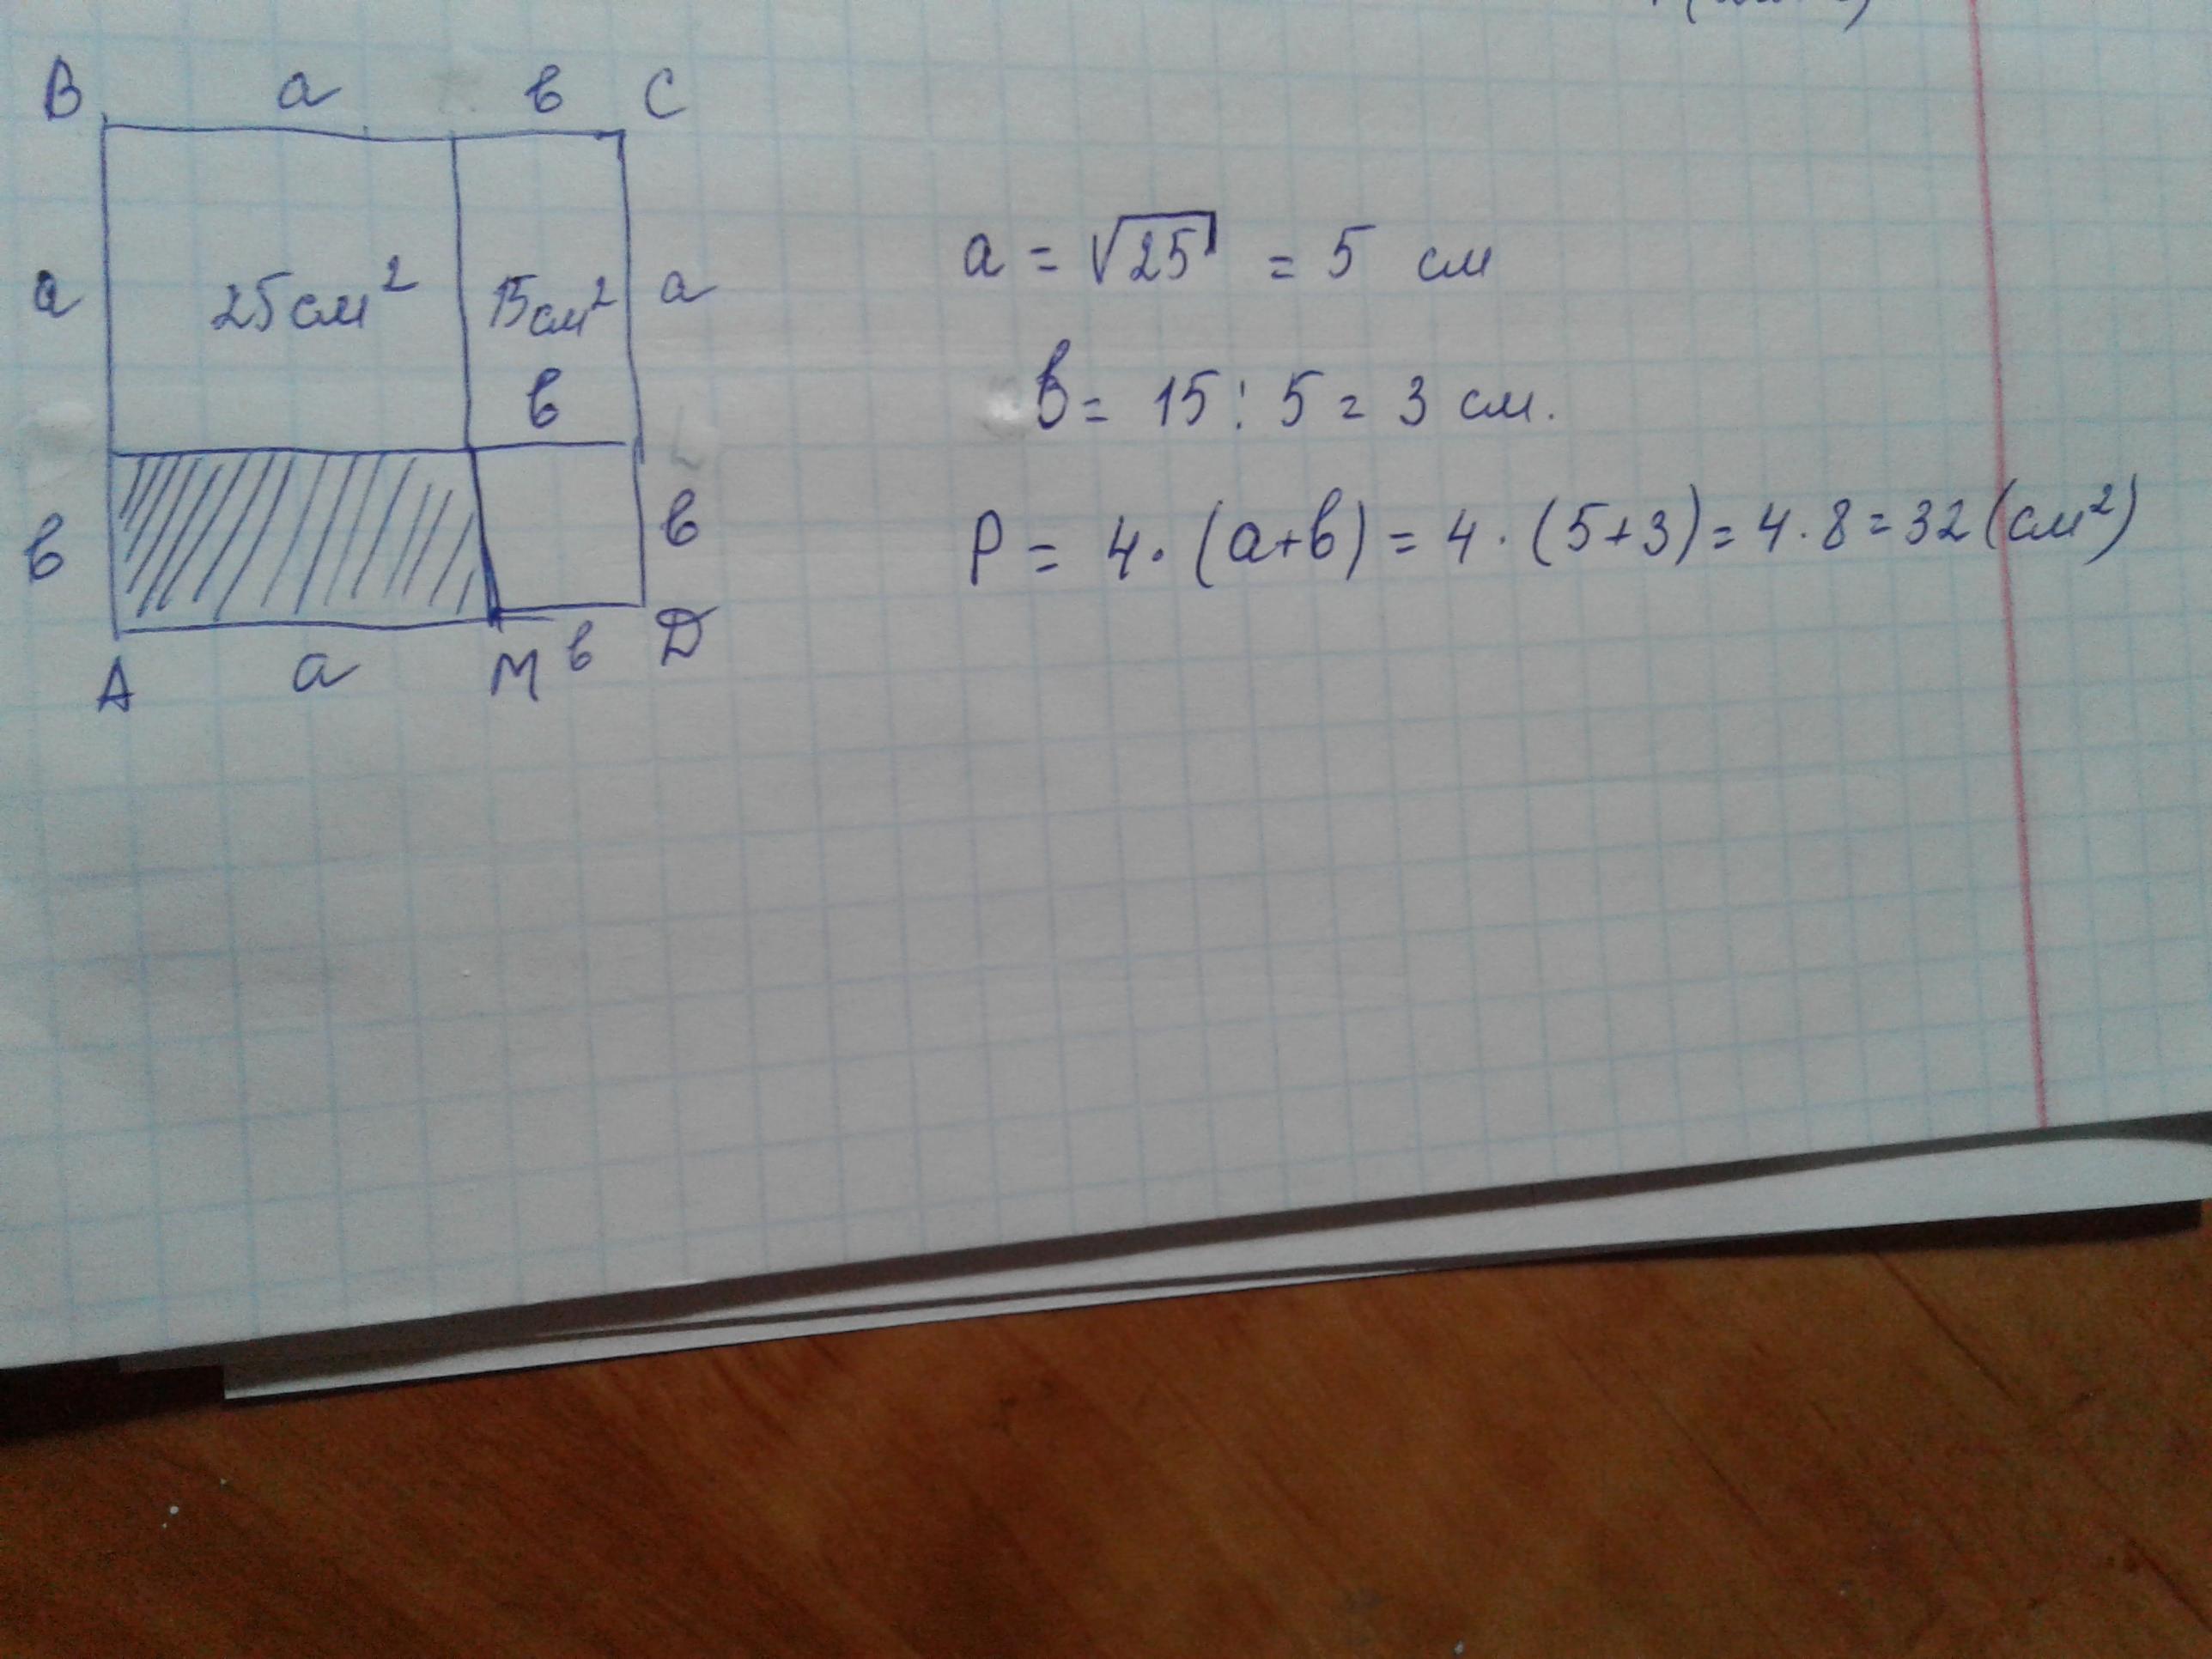 B a в C
a 25см² 15см² a
в
в в
A a M в D
a = √25 = 5 см
в = 15 : 5 = 3 см.
P = 4 · (a+в) = 4 · (5+3) = 4 · 8 = 32 (см²)